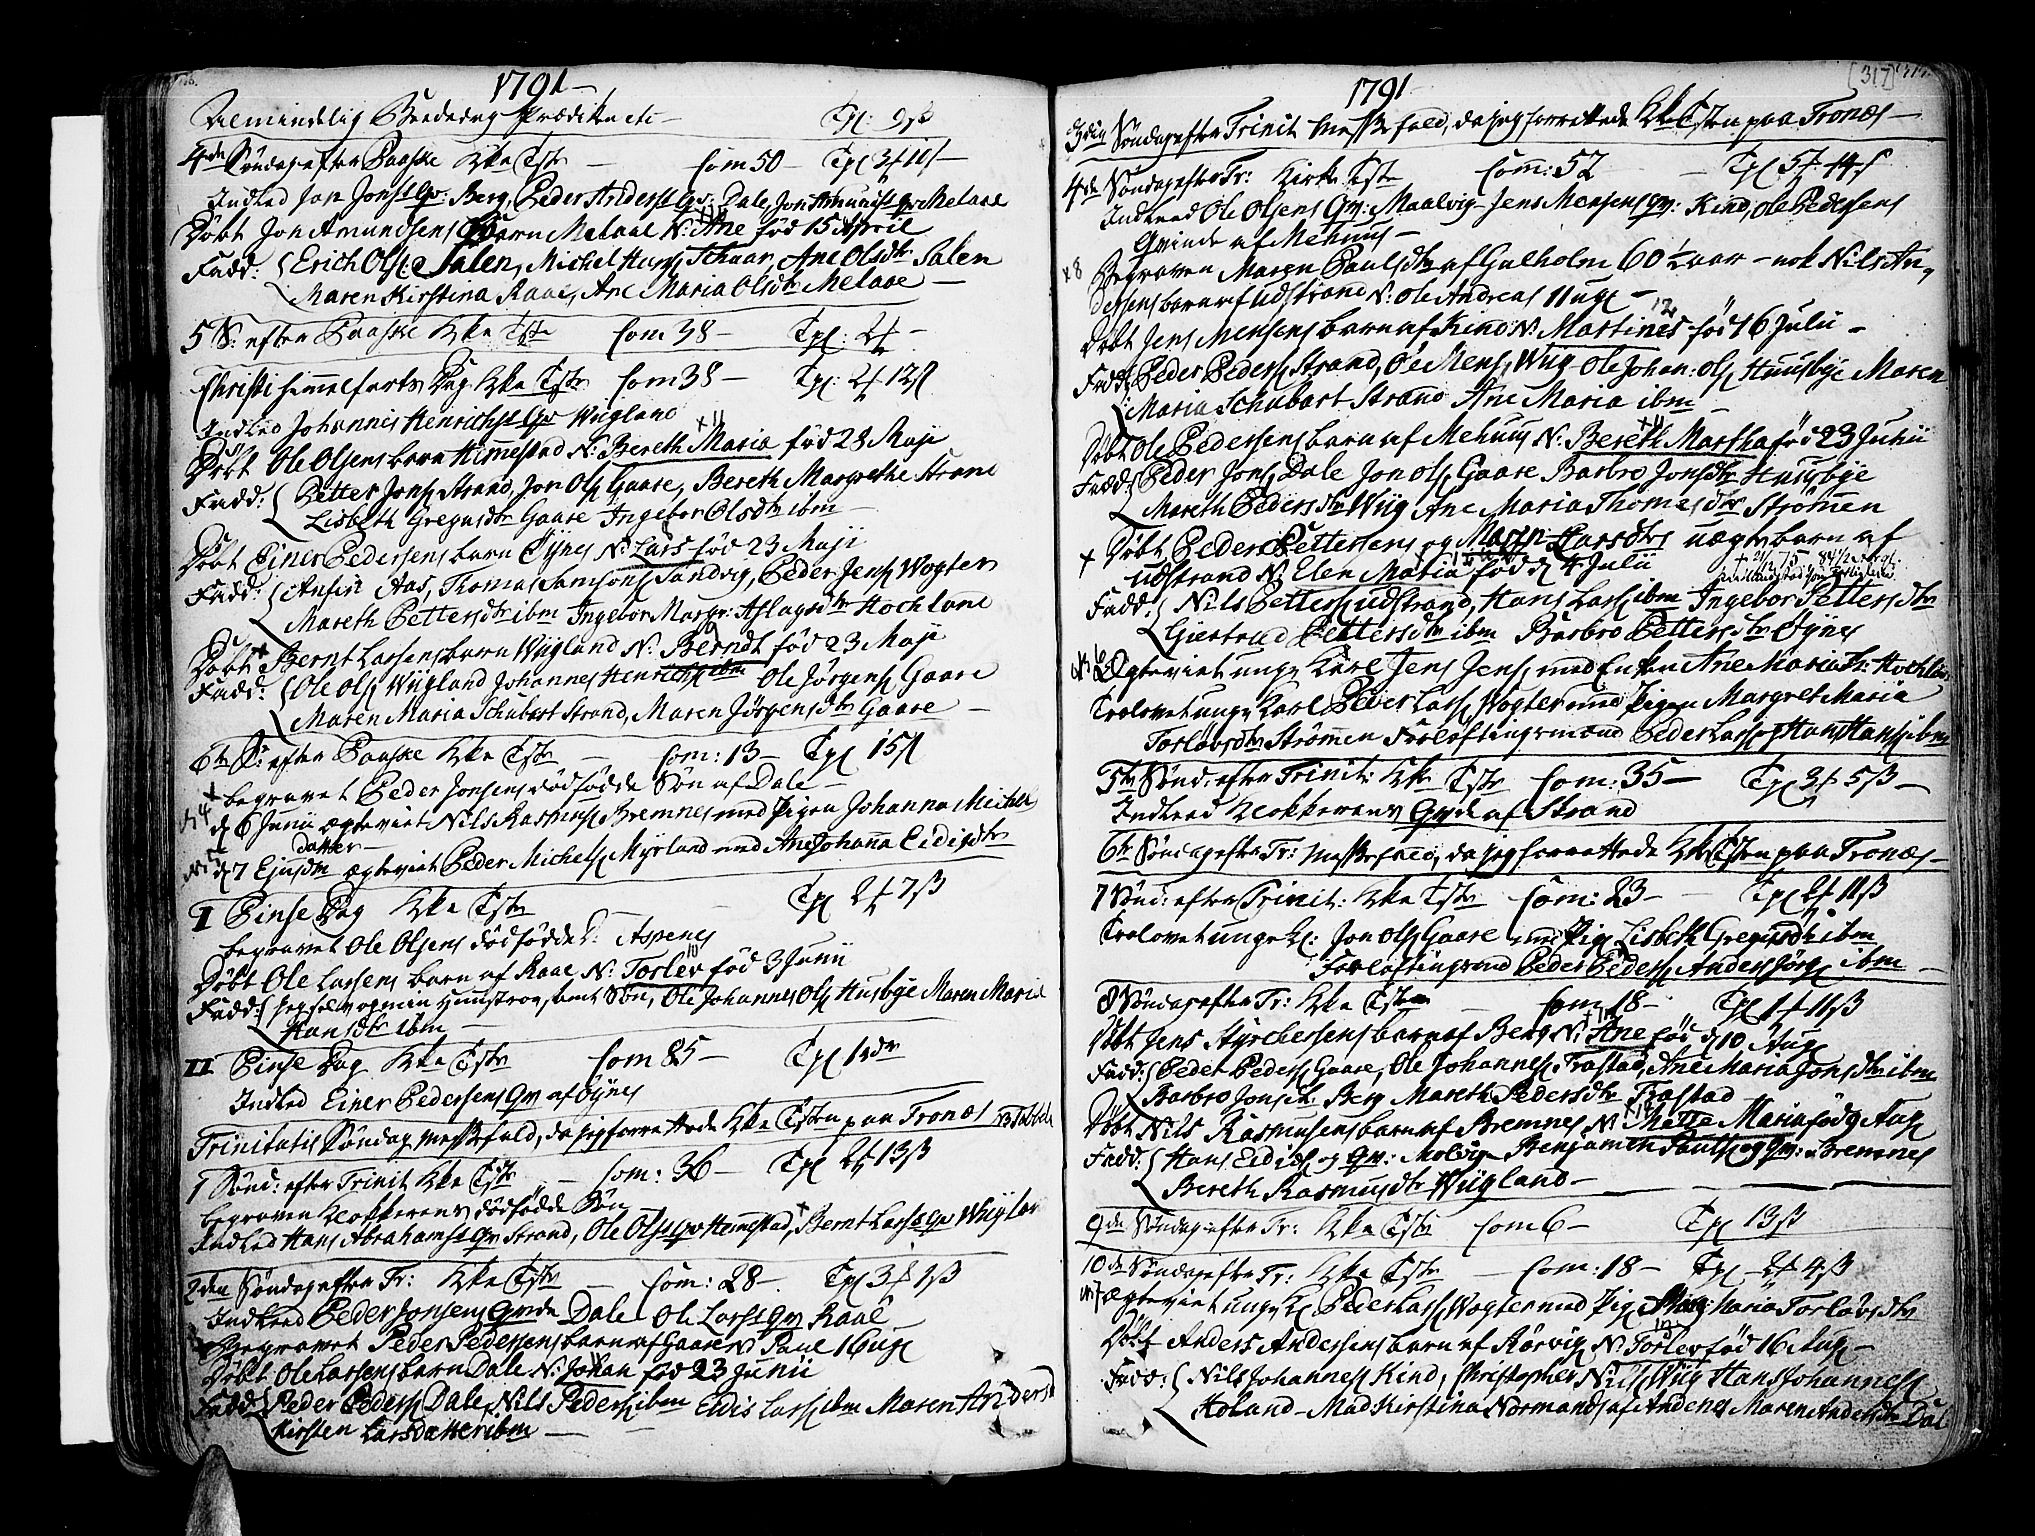 1791
Almindelig Bededag Prædiken etc Tpl: 9ß
4de Søndag efter Paaske Hke Tste Com 50 Tpl 3
Indled Jon Jonss Qv: Berg, Peder Anderss Qv: Dale, Jon Amunss Qv Melaae
Døbt Jon Amundsens Barn Melaae N: Ane fød 15 April
Fadd: Erich Ols Salen, Michel Hans Skaar, Ane Olsdtr Salen
Maren Kirstina Raae, Ane Maria Olsdtr Melaae
5 S: efter Paaske Hke Tste Com 38 Tpl: 2
Christi himmelfarts Dag Hke Tste Com 38 Tpl: 2 12
Indled Johannis Henrichss Qv Wiigland
Døbt Ole Olsens barn Hemestad N: Bereth Maria fød 28 Maji
Fadd: Petter Jons Strand, Jon Ols Gaare, Bereth Margrethe Strand
Lisbeth Gregusdtr Gaare Ingebor Olsdtr ibm
Døbt Einer Pedersens barn Øynes N: Lars fød 23 Maji
Fadd: Anfin Aas, Thomas Samsons Sandvig, Peder Jens Wogter
Mareth Pettersdtr ibm Ingebor Margr: Aslagsdtr Hochland
Døbt Bernt Larsens barn Wiigland N: Berndt fød 23 Maji
Fadd: Ole Ols Wiigland Johannes Henrichs ibm Ole Jørgens Gaare
Maren Maria Schubert Strand, Maren Jørgensdtr Gaare
6te S: efter Paaske Hke Tste Com: 13 Tpl 15
begravet Peder Jonsens dødfødde Søn af Dale
d 6 Junii ægteviet Nils Rasmus Bremnes med Pigen Johanna Michels
datter
d 7 Ejusdm ægteviet Peder Michels Myrland med Ane Johanna Eidisdtr
I Pinse Dag Hke Tste Tpl 2 7ß
begravet Ole Olsens dødfødde Aspenes
Døbt Ole Larsens barn af Raae N: Torlev fød 3 Junii
Fadd: Jeg selv og min Hustroe, samt Søn, Ole Johannes Ols Husbye Maren Maria
Hansdtr ibm
II Pinse Dag Hke Tste Com 85 Tpl 1 rdr
Indled Einer Pedersens Qv af Øynes
Trinitatis Søndag Messefald, da jeg forrettede Hke Tsten paa Tronæs
1 Sønd: efter Trinit Hke Tste Com: 36 Tpl 2 13ß
begraven Klokkerens dødfødde Søn
Indled Hans Abrahamss Qv Strand, Ole Olss Qv Hemestad, Bernt Larss Qv Wiigland
2den Søndag efter Tr: Hke Tste Com: 28 Tpl 3 1ß
Indleed Peder Jonsens Qvinde Dale Ole Larss Qv Raae
Begravet Peder Pedersens barn af Gaare N Paul 16 ug
Døbt Ole Larsens barn Dale N: Johan fød 23 Junii
Fadd: Peder Peders Dale, Nils Peders ibm Eidis Lars ibm Maren Andersd
Kirsten Larsdatter ibm
1791
[317]
3die Søndag efter Trinit Messefald, da jeg forrettede Hke Tsten paa Tronæs
4de Søndag efter Tr: Kirke Tste Com: 52 Tpl 5 14
Indleed Ole Olsens Qv: Maalvig Jens Monsens Qv: Kind, Ole Pedersens
Qvinde af Mehuus
Begraven Maren Paulsdtr af Gulholm 60 1/2 aar nok Nils An-
dersens barn af udstrand N: Ole Andreas 11 ug
Døbt Jens Mensens barn af Kind N: Martines fød 16 Julii
Fadd: Peder Peders Strand, Ole Mens Wiig Ole Johan: Ols Huusbye Maren
Maria Schubart Strand Ane Maria ibm
Døbt Ole Pedersens barn af Mehuus N: Bereth Martha fød 23 Junii
Fadd: Peder Jons Dale Jon Ols Gaare Barbro Jonsdtr Husbye
Mareth Pedersdtr Wiig Ane Maria Thomesdtr Strømen
Døbt Peder Pettersens og Maren Larsdtrs uægte barn af
udstrand N: Elen Maria fød d 4 Julii
Fadd: Nils Petters udstrand, Hans Lars ibm Ingebor Pettersdtr
Giertrud Pettersdtr ibm Barbro Pettersdtr Øynes
Ægteviet unge Karl Jens Jens med Enken Ane Maria Hochland
Trolovet unge Karl Peder Lars Wogter med Pigen Margret Maria
Torlovsdtr Strømen Forløftingsmænd Peder Lars og Hans Hans ibm
5te Sønd: efter Trinit: Hke Tste Com: 35 Tpl 3 5ß
Indleed Klokkerens Qvde af Strand
6te Søndag efter Tr: Messefald, da jeg forrettede Hke Tsten paa Tronæs
7 Sønd: efter Trinit: Hke Tste Com: 23 Tpl 2 11ß
Trolovet unge K: Jon Ols Gaare med Pig Lisbeth Gregusdtr ibm
Forløftingsmend Peder Peders Anders Jørg ibm
8 Søndag efter Tr: Hke Tste Com 18 Tpl 1 11ß
Døbt Jens Styrchersens barn af Berg N: Ane fød d 10 Aug
Fadd: Peder Peders Gaare, Ole Johannes Trastad, Ane Maria Jonsdtr ibm
Barbro Jonsdtr Berg Mareth Pedersdtr Trastad
Døbt Nils Rasmusens barn af Bremnes N Mette Maria fød 9 Aug
Fadd: Hans Eidis og Qv: Molvig Benjamin Pauls og Qv: Bremnes
Bereth Rasmusdtr Wiigland
9de Søndag efter Tr: Hke Tste Com 6 Tpl 13ß
10de Søndag efter Tr: Hke Tste Com: 18 Tpl 2 4ß
ægteviet unge K Peder Lars Wogter med Pig Marg: Maria Torlovsdtr
Døbt Anders Andersens barn af Rørvig N: Torlev fød 16 Aug
Fadd: Nils Johannes Kind, Christopher Nils Wiig Hans Johannes
Holand Mad Kirstina Normands af Andenes Maren Andersdtr Dale